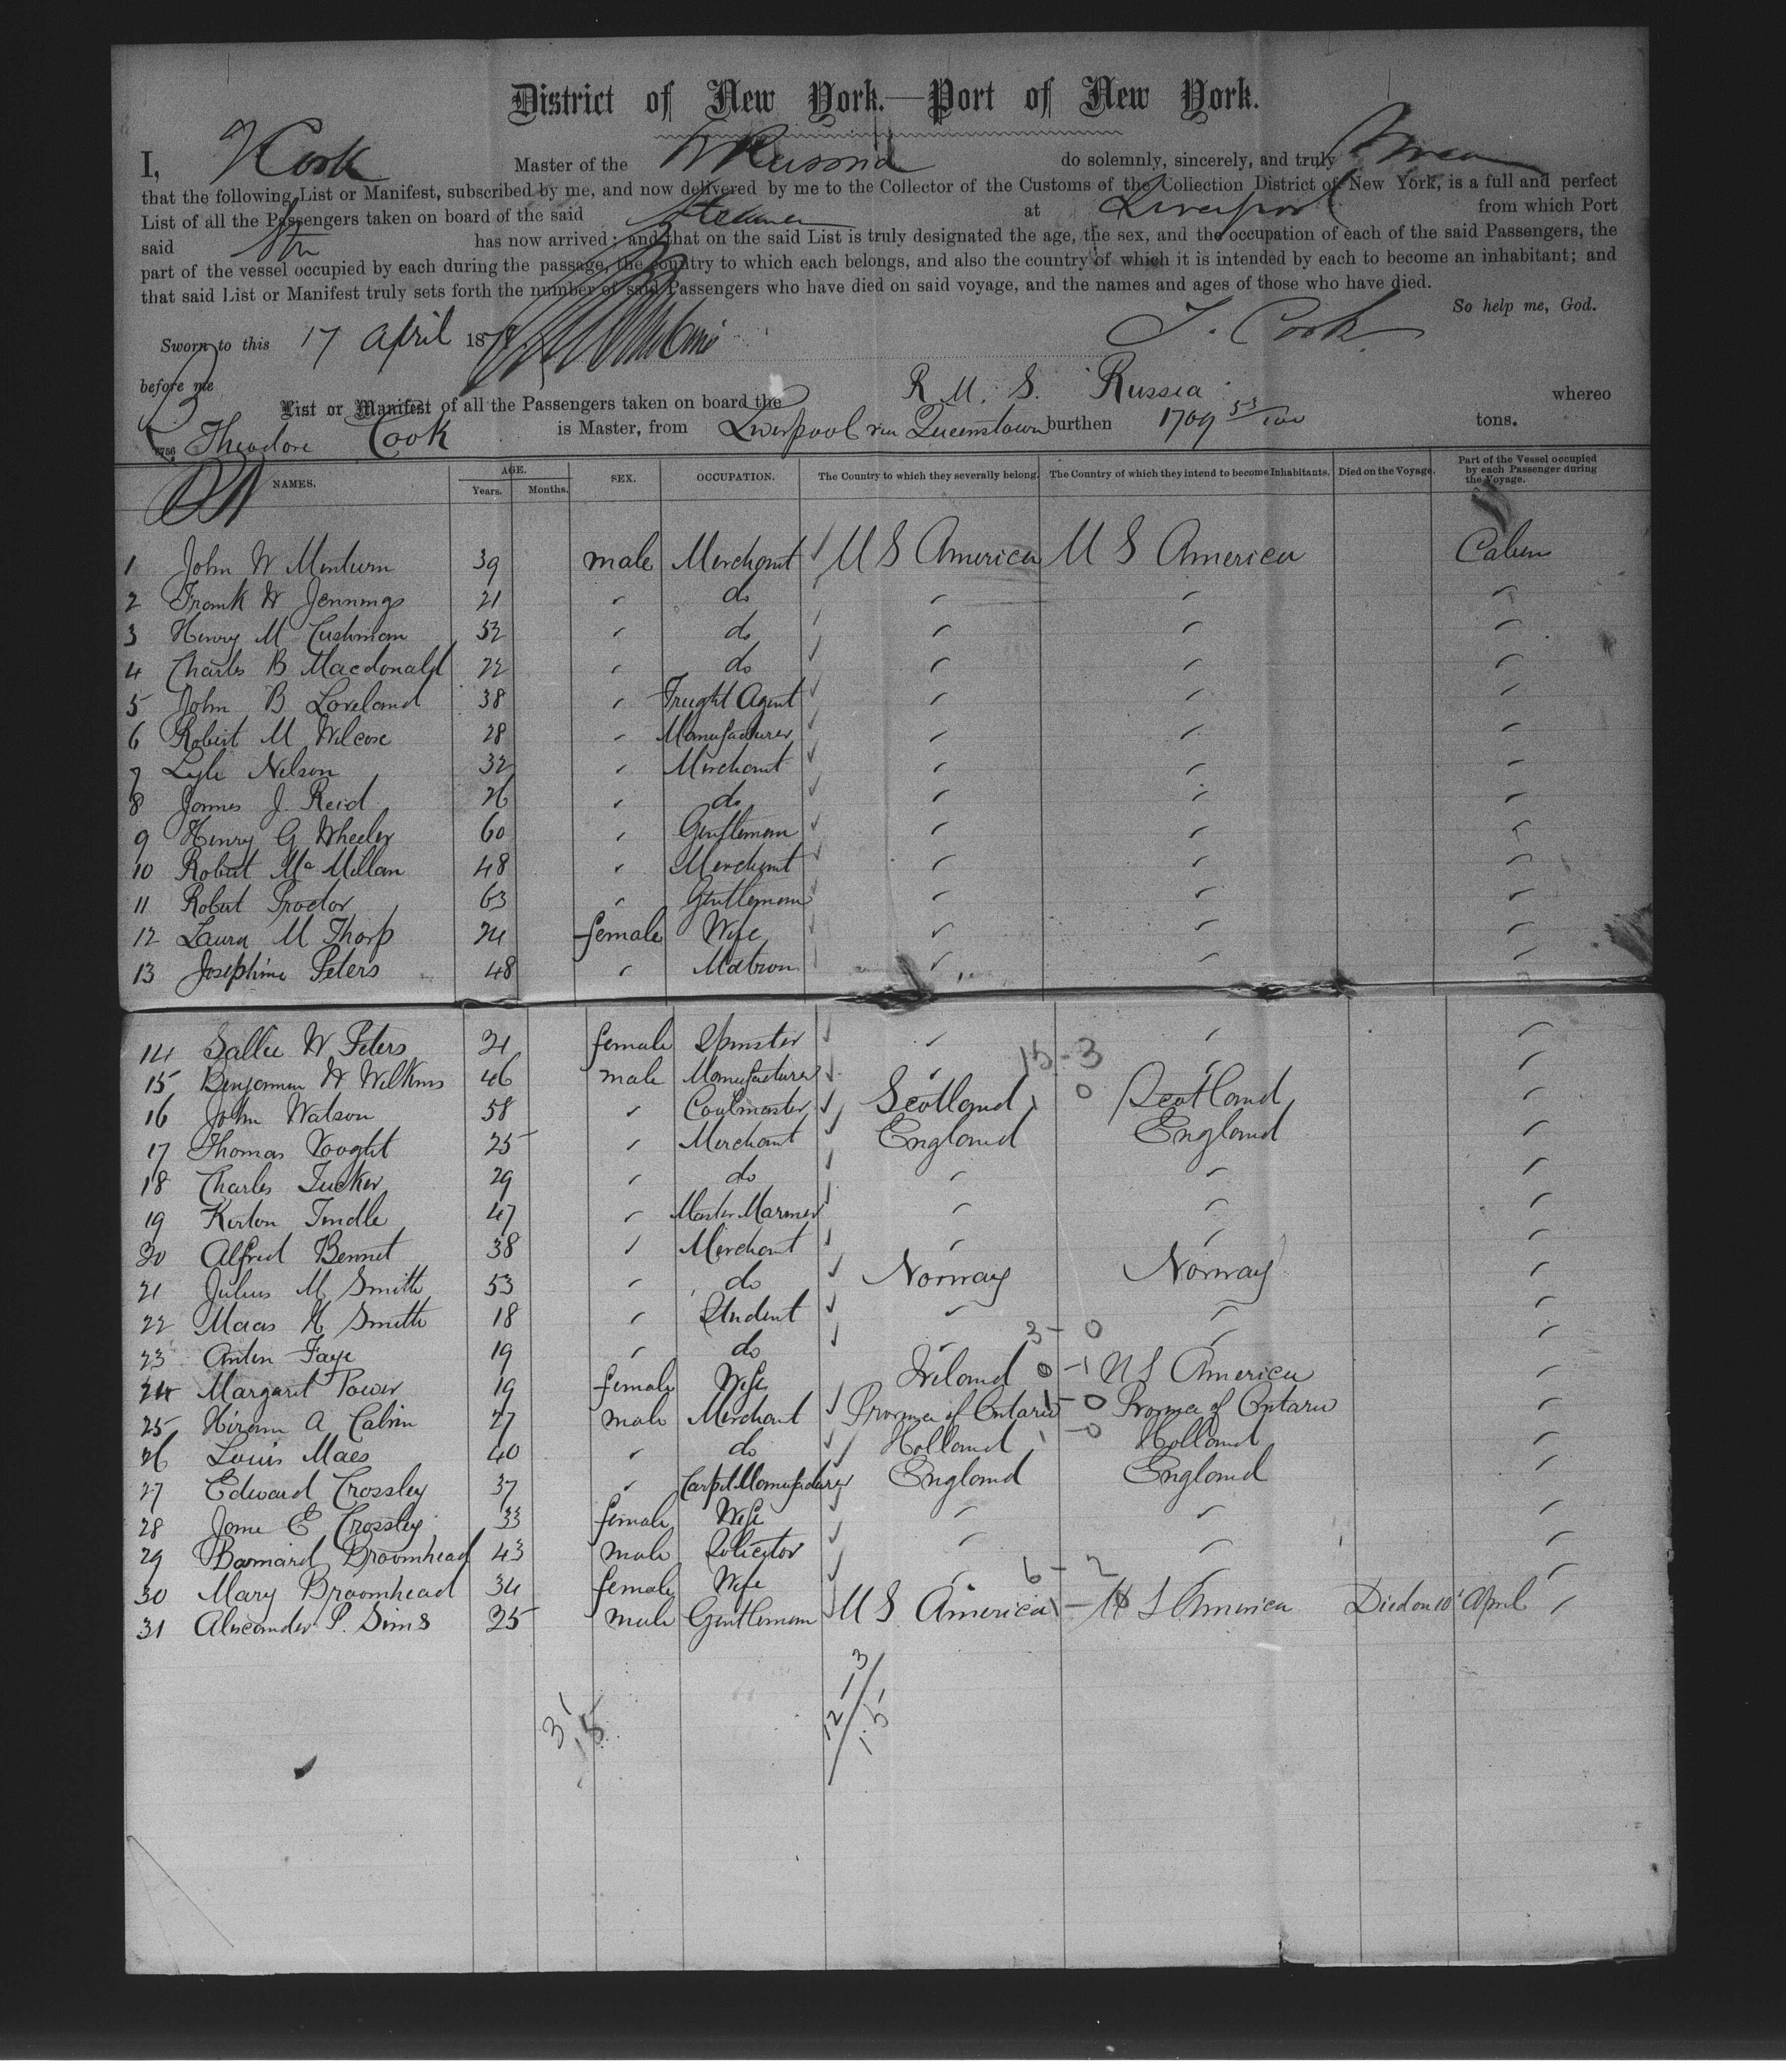 District of New York.—Port of New York.
I, T Cook Master of the Russia do solemnly, sincerely, and truly Swear
that the following List or Manifest, subscribed by me, and now delivered by me to the Collector of the Customs of the Collection District of New York, is a full and perfect
List of all the Passengers taken on board of the said Steamer at Liverpool from which Port
said Str has now arrived; and that on the said List is truly designated the age, the sex, and the occupation of each of the said Passengers, the
part of the vessel occupied by each during the passage, the country to which each belongs, and also the country of which it is intended by each to become an inhabitant; and
that said List or Manifest truly sets forth the number of said Passengers who have died on said voyage, and the names and ages of those who have died.
So help me, God.
Sworn to this 17 April 187 T. Cook
before me
List or Manifest of all the Passengers taken on board the R.M.S. Russia whereo
Theodore Cook is Master, from Liverpool via Queenstown burthen 1709 53/100 tons.
NAMES. AGE. Years. Months. SEX. OCCUPATION. The Country to which they severally belong. The Country of which they intend to become Inhabitants. Died on the Voyage. Part of the Vessel occupied by each Passenger during the Voyage.
1 John W Minturn 39 male Merchant U S America U S America Cabin
2 Frank W Jennings 21 " do " " "
3 Henry M Cushman 52 " do " " "
4 Charles B Macdonald 22 " do " " "
5 John B Loveland 38 " Freight Agent " " "
6 Robert M Wilcox 28 " Manufacturer " " "
7 Lyle Nelson 32 " Merchant " " "
8 James J. Reid 26 " do " " "
9 Henry G Wheeler 60 " Gentleman " " "
10 Robert Mc Millan 48 " Merchant " " "
11 Robert Proctor 63 " Gentleman " " "
12 Laura M Thorp 24 female Wife " " "
13 Josephine Peters 48 " Matron " " "
14 Sallie W Peters 21 female Spinster " " "
15 Benjamin W Wilkins 46 male Manufacturer " " "
15-3
16 John Watson 58 " Coalmaster Scotland 1 0 Scotland "
17 Thomas Voght 25 " Merchant England England "
18 Charles Tucker 29 " do " " "
19 Kirton Tindle 47 " Master Mariner " " "
20 Alfred Bennet 38 " Merchant " " "
21 Julius M Smith 53 " do Norway Norway "
22 Macas H Smith 18 " Student " " "
23 Anton Faye 19 " do " " "
3-0
24 Margaret Power 19 female Wife Ireland 0-1 U S America "
25 Hiram A Calvin 27 male Merchant Province of Ontario 1-0 Province of Ontario "
26 Louis Maes 40 " do Holland 1-0 Holland "
27 Edward Crossley 37 " Carpet Manufacturer England England "
28 Jane E Crossley 33 female Wife " " "
29 Barnard Broomhead 43 male Solicitor " " "
30 Mary Broomhead 34 female Wife " " "
6-2
31 Alexander P. Sims 25 male Gentleman U S America 1- U S America Died on 10 April "
31
15
12-3
15